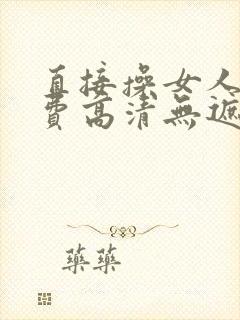 直接操女人
費高清無遮
藥藥